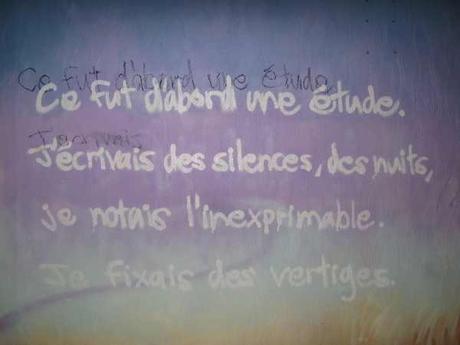 Ce fut d'abord une étude
Ce fut d'abord une étude.
J'écrivais
J'écrivais des silences, des nuits,
je notais l'inexprimable.
Je fixais des vertiges.